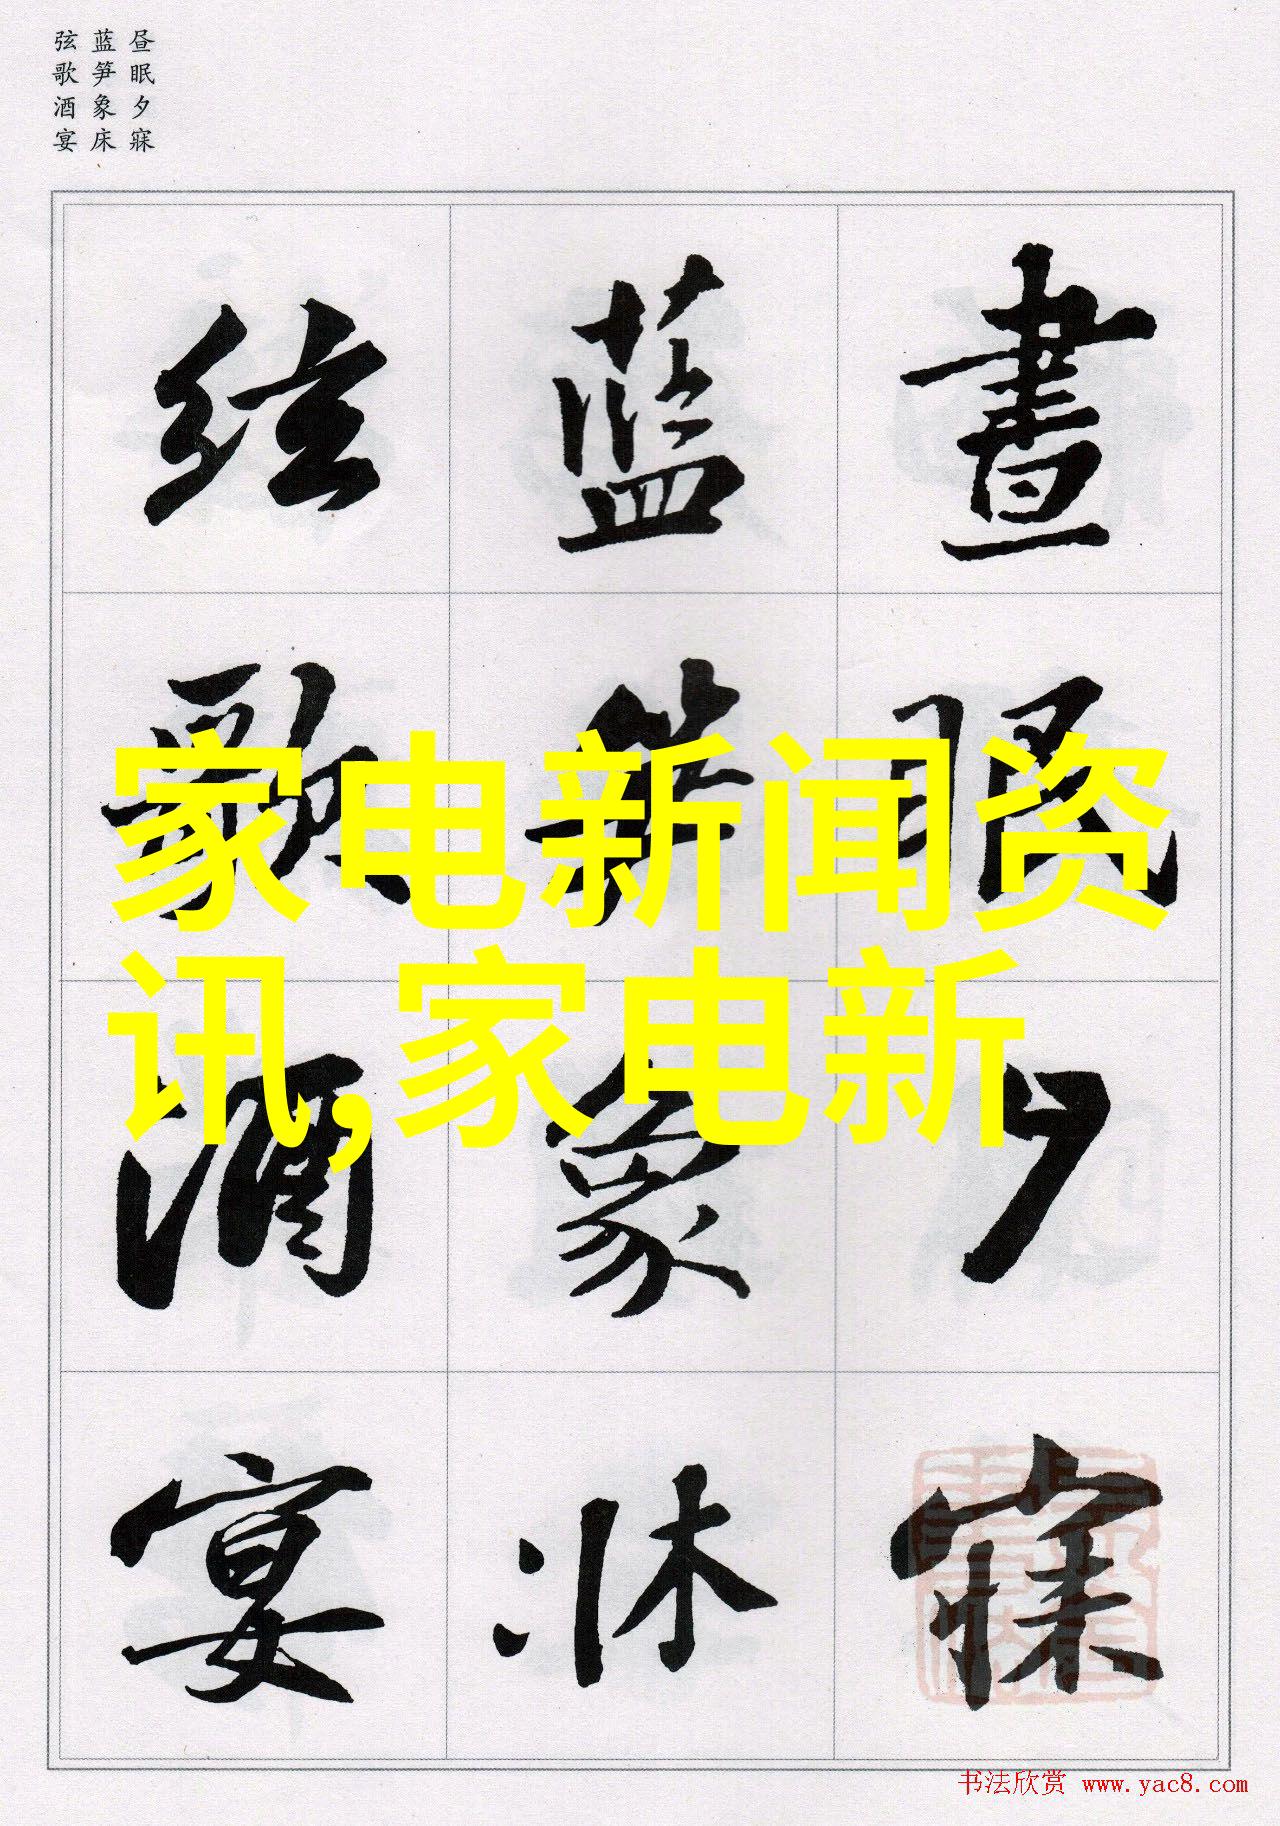 昼眠夕寐
蓝笋象床
弦歌酒宴
晝眠夕寐
藍笋象床
弦歌酒宴
家电新闻资
讯,家电新
书法欣赏 www.yac8.com